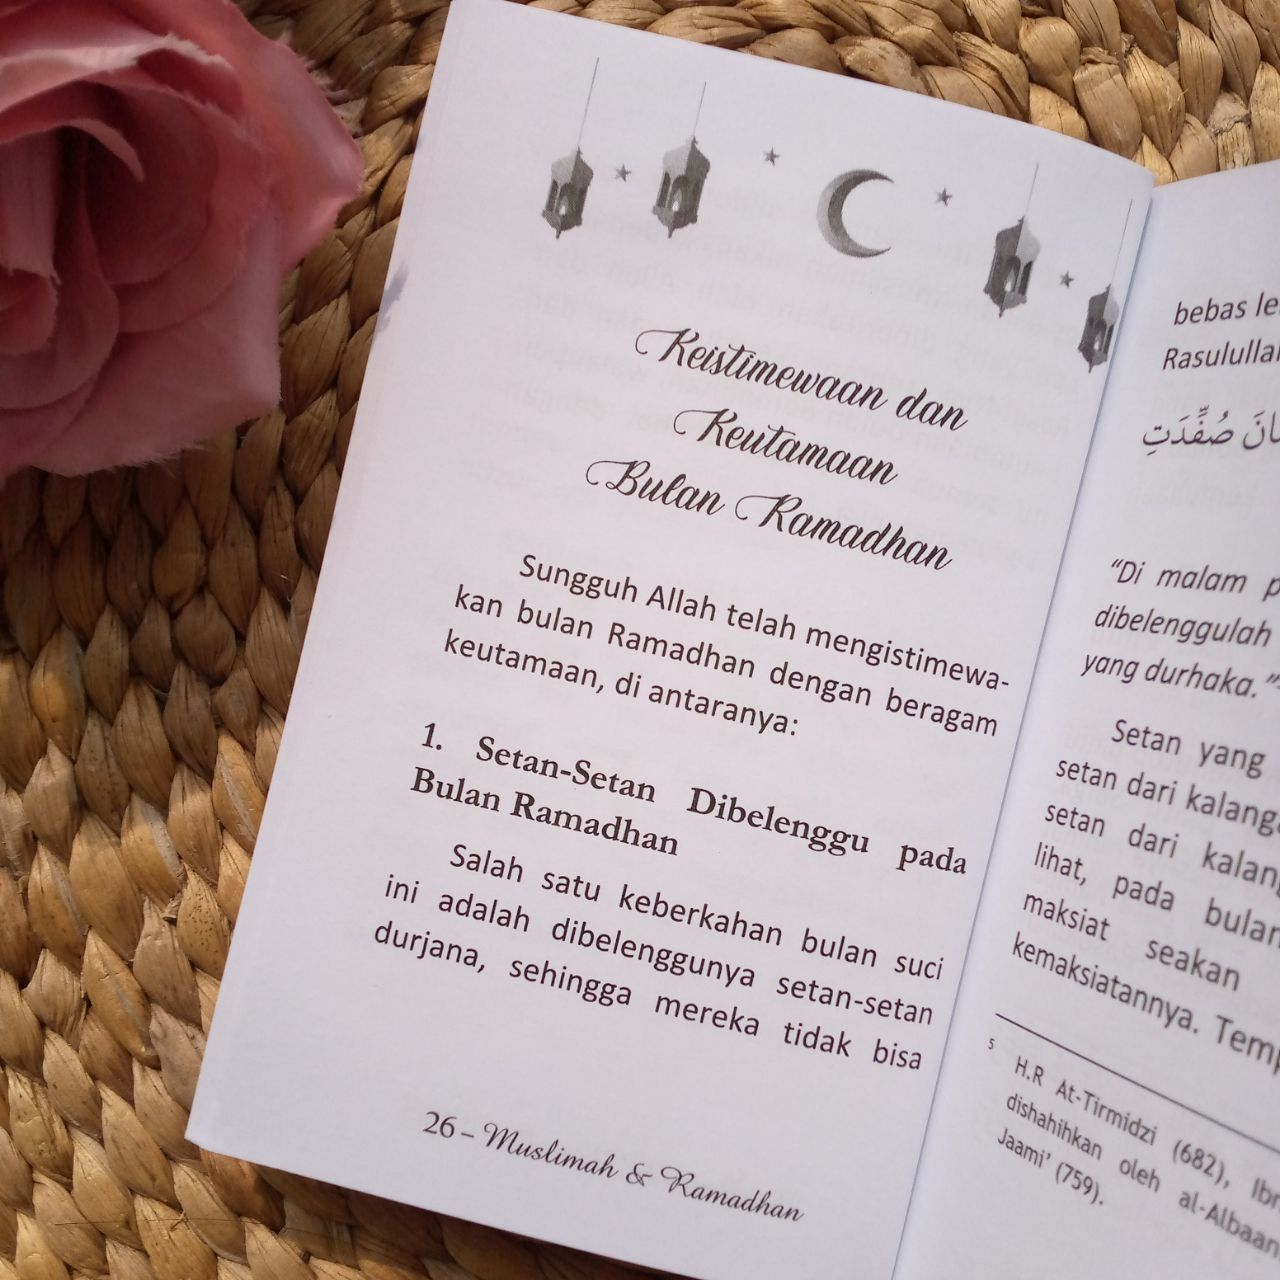 Keistimewaan dan
Keutamaan
Bulan Ramadhan
Sungguh Allah telah mengistimewa-
kan bulan Ramadhan dengan beragam
keutamaan, di antaranya:
1. Setan-Setan Dibelenggu pada
Bulan Ramadhan
Salah satu keberkahan bulan suci
ini adalah dibelenggunya setan-setan
durjana, sehingga mereka tidak bisa
26 – Muslimah & Ramadhan
bebas
صُفِّدَتِ
“Di malam
dibelenggulah
yang durhaka.”
Setan yang
setan dari
setan dari
lihat, pada
maksiat seakan
kemaksiatannya.
5 H.R At-Tirmidzi (682),
dishahihkan oleh
Jaami’ (759).